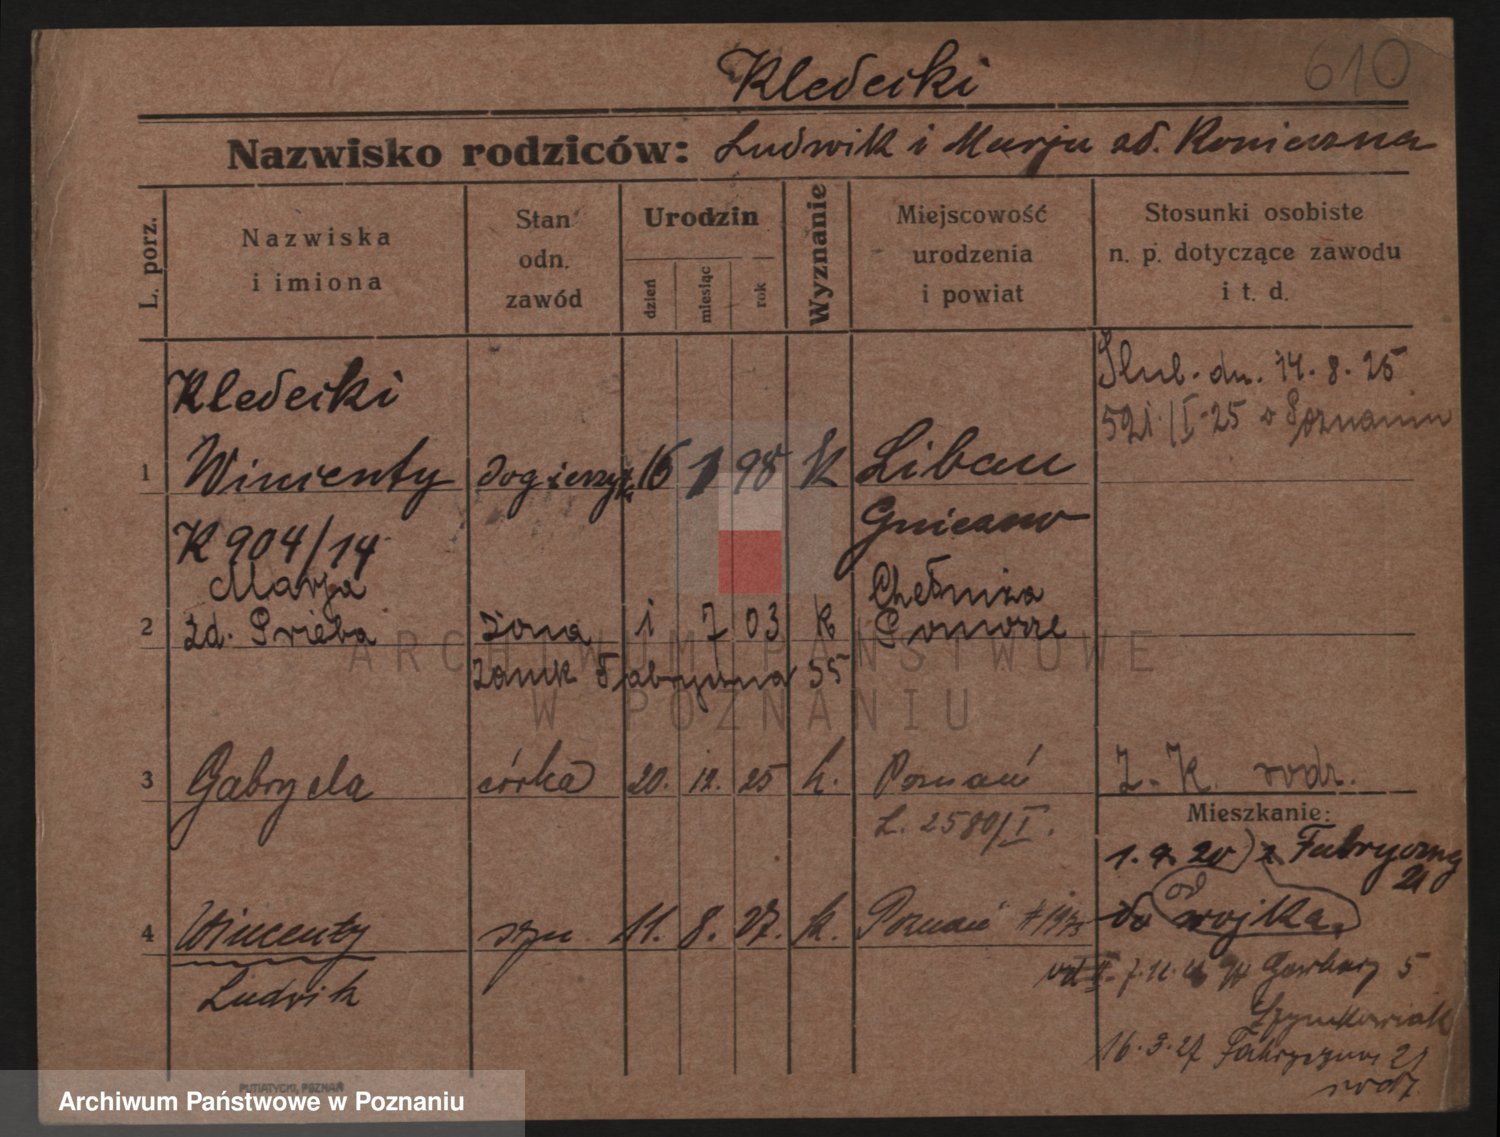 610
Kledecki
Nazwisko rodziców: Ludwik i Marja zd. Konieczna
L. porz.
Nazwiska
i imiona
Stan
odn.
zawód
Urodzin
dzień
miesiąc
rok
Wyznanie
Miejscowość
urodzenia
i powiat
Stosunki osobiste
n. p. dotyczące zawodu
i t. d.
Ślub. dn. 14. 8. 25
521/I-25 w Poznaniu
Kledecki
1 Wincenty 16 1 98 k Libau
Gniezno
K 904/14
Marja Chełmża
2 zd. Prieba żona 1 7 03 k Pomorze
Fabryczna 35
3 Gabryela córka 20. 12. 25 k. Poznań Z. K. rodz.
L. 2580/I.
Mieszkanie:
1. 9. 20 z Fabryczny
21
od
4 Wincenty syn 11. 8. 27. k. Poznań do wojska.
Ludwik
Garbary 5
Szymkowiak
16. 3. 27 Fabryczna 21
rodz.
PUTIATYCKI, POZNAŃ
ARCHIWUM PAŃSTWOWE
W POZNANIU
Archiwum Państwowe w Poznaniu